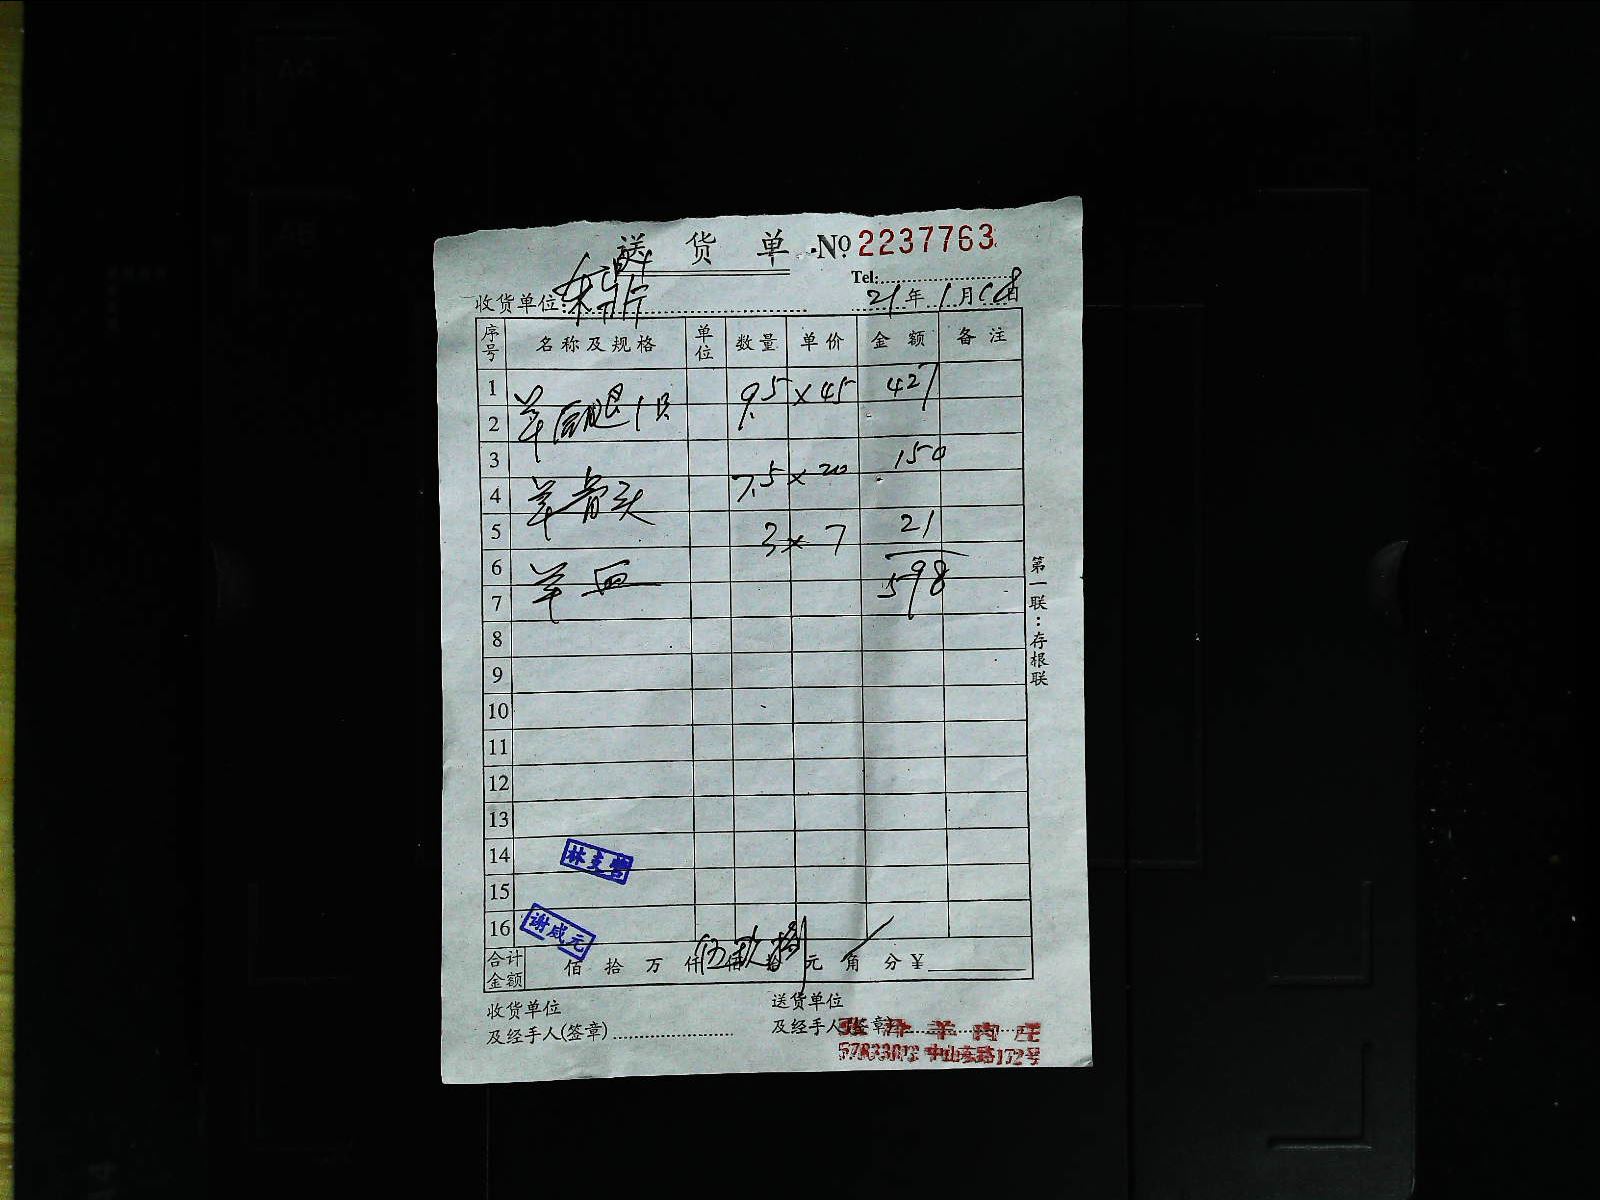 送货单 №2237763
Tel:
收货单位: 21年1月18日
序号 名称及规格 单位 数量 单价 金额 备注
1 9.5 × 45 427
2 羊后腿1只
3 150
4 羊骨头 7.5 × 20
5 3 × 7 21
6 羊血 598
7
8
9
10
11
12
13
14 林主管
15
16 谢成元
合计金额 佰拾万仟伍佰玖拾捌元角分¥
第一联:存根联
收货单位 送货单位
及经手人(签章) 及经手人(签章)
张泽羊肉庄
中山东路172号